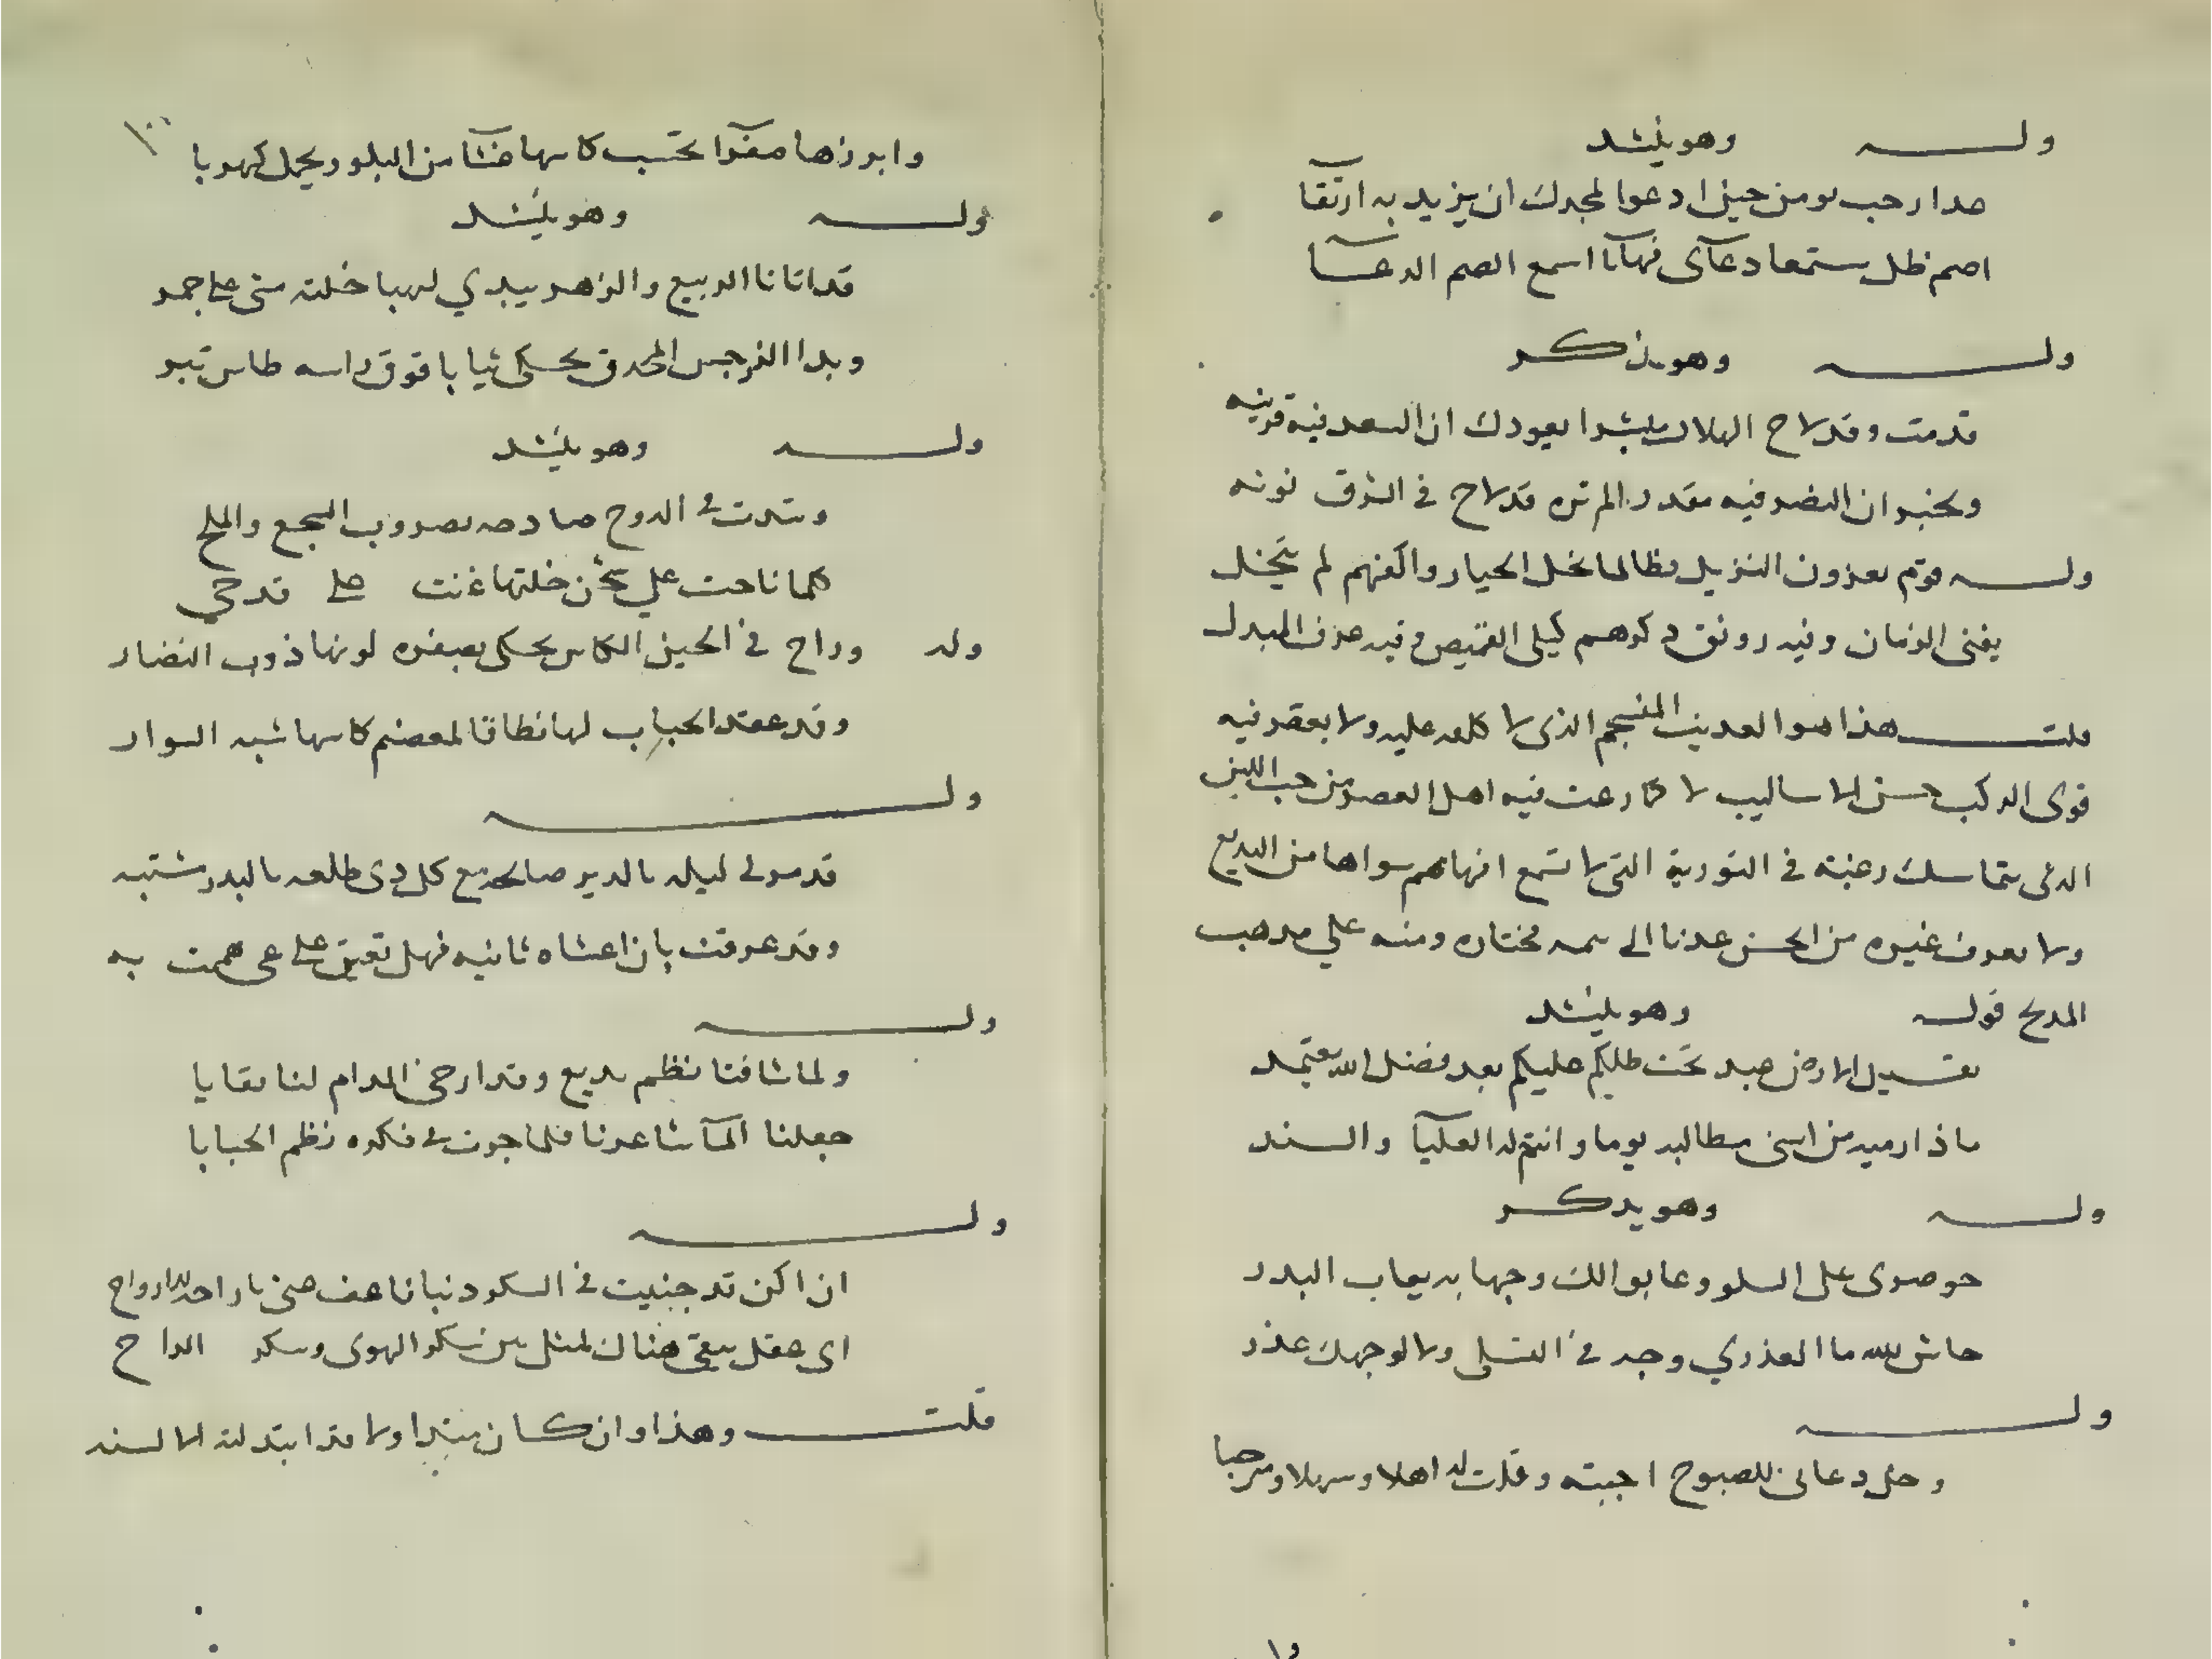 وله وهو ينشد
مدا رحب يومن حين ادعوا لمجدك ان يزيد به ارتقآ
اصم ظل مستمعا دعآى فهآنا اسمع الصم الدعــآ
وله وهو يذكر
قدمت وقد لاح الهلال مبشرا بعودك ان السعد فيه قرينه
ويخبر ان النصر فيه مقدر الم تره قد لاح في الشرق نونه
وله قوم يعزون النزيل وطالما بخل الحيا واكفهم لم تبخل
يفنى الزمان وفيه رونق ذكرهم كبلى القميص وفيه عرف المندل
قلت هذا هو العذب المنسجم الذى لا كلفه عليه ولا بعقد فيه
قوى التركيب حسن الاساليب لا كما رغب فيه اهل العصر من حب
الذى يتماسك رغبته في التورية التى لا تسمع افهامهم سواها من البديع
ولا يعرف غيره من الحسن عدنا الى سمه مختاره ومنه على مذهب
المديح قوله وهو ينشد
يقبل الارض عبد تحت ظلكم عليكم بعد فضل الله يعتمد
ماذا رميه من اسنى مطالبه يوما وانتم له العليآ والسند
وله وهو يذكر
حرضوى على السلو وعابوا لك وجها به يعاب البدر
حاش لله ما العذري وجد في التسلي ولا لوجهك عذر
وله
وخل دعانى للصبوح اجبته وقلت له اهلا وسهلا ومرحبا
وابرزها صفرآ تحسب كاسها فتًا من البلور يحمل كهربا
وله وهو ينشد
قد اتانا الربيع والزهر يبدي لهبا خلته مشى على جمر
وبدا النرجس المحدق يحكى ثيابا فوق راسه طاس تبر
وله وهو ينشد
وشدت في الدوح صادحه بضروب السجع والملح
كلما ناحت على شجن خلتها غنت على قدحي
وله وراح في الحين الكاس يحكى بصبغره لونها ذوب النضار
وقد عقد الحباب لها نطاقا لمعصم كاسها شبه السوار
وله
قد مر لى ليله بالدير صالحه مع كل ذى طلعه بالبدر مشتبه
وقد عرفت بان اعشاه ثانيه فهل تعين على غى هممت به
وله
ولما شاقنا نظم بديع وقد ارخى المدام لنا نقابا
جعلنا المآ شاعرنا فلما جرت في فكره نظم الحبابا
وله
ان اكن قد جنيت في السكر ذنبا فاعف عنى يا راحة الارواح
اى عقل يبقى هناك لمثل بين سكر الهوى وسكر الراح
قلت وهذا وان كان ولا قد ابتدلته الالسنه